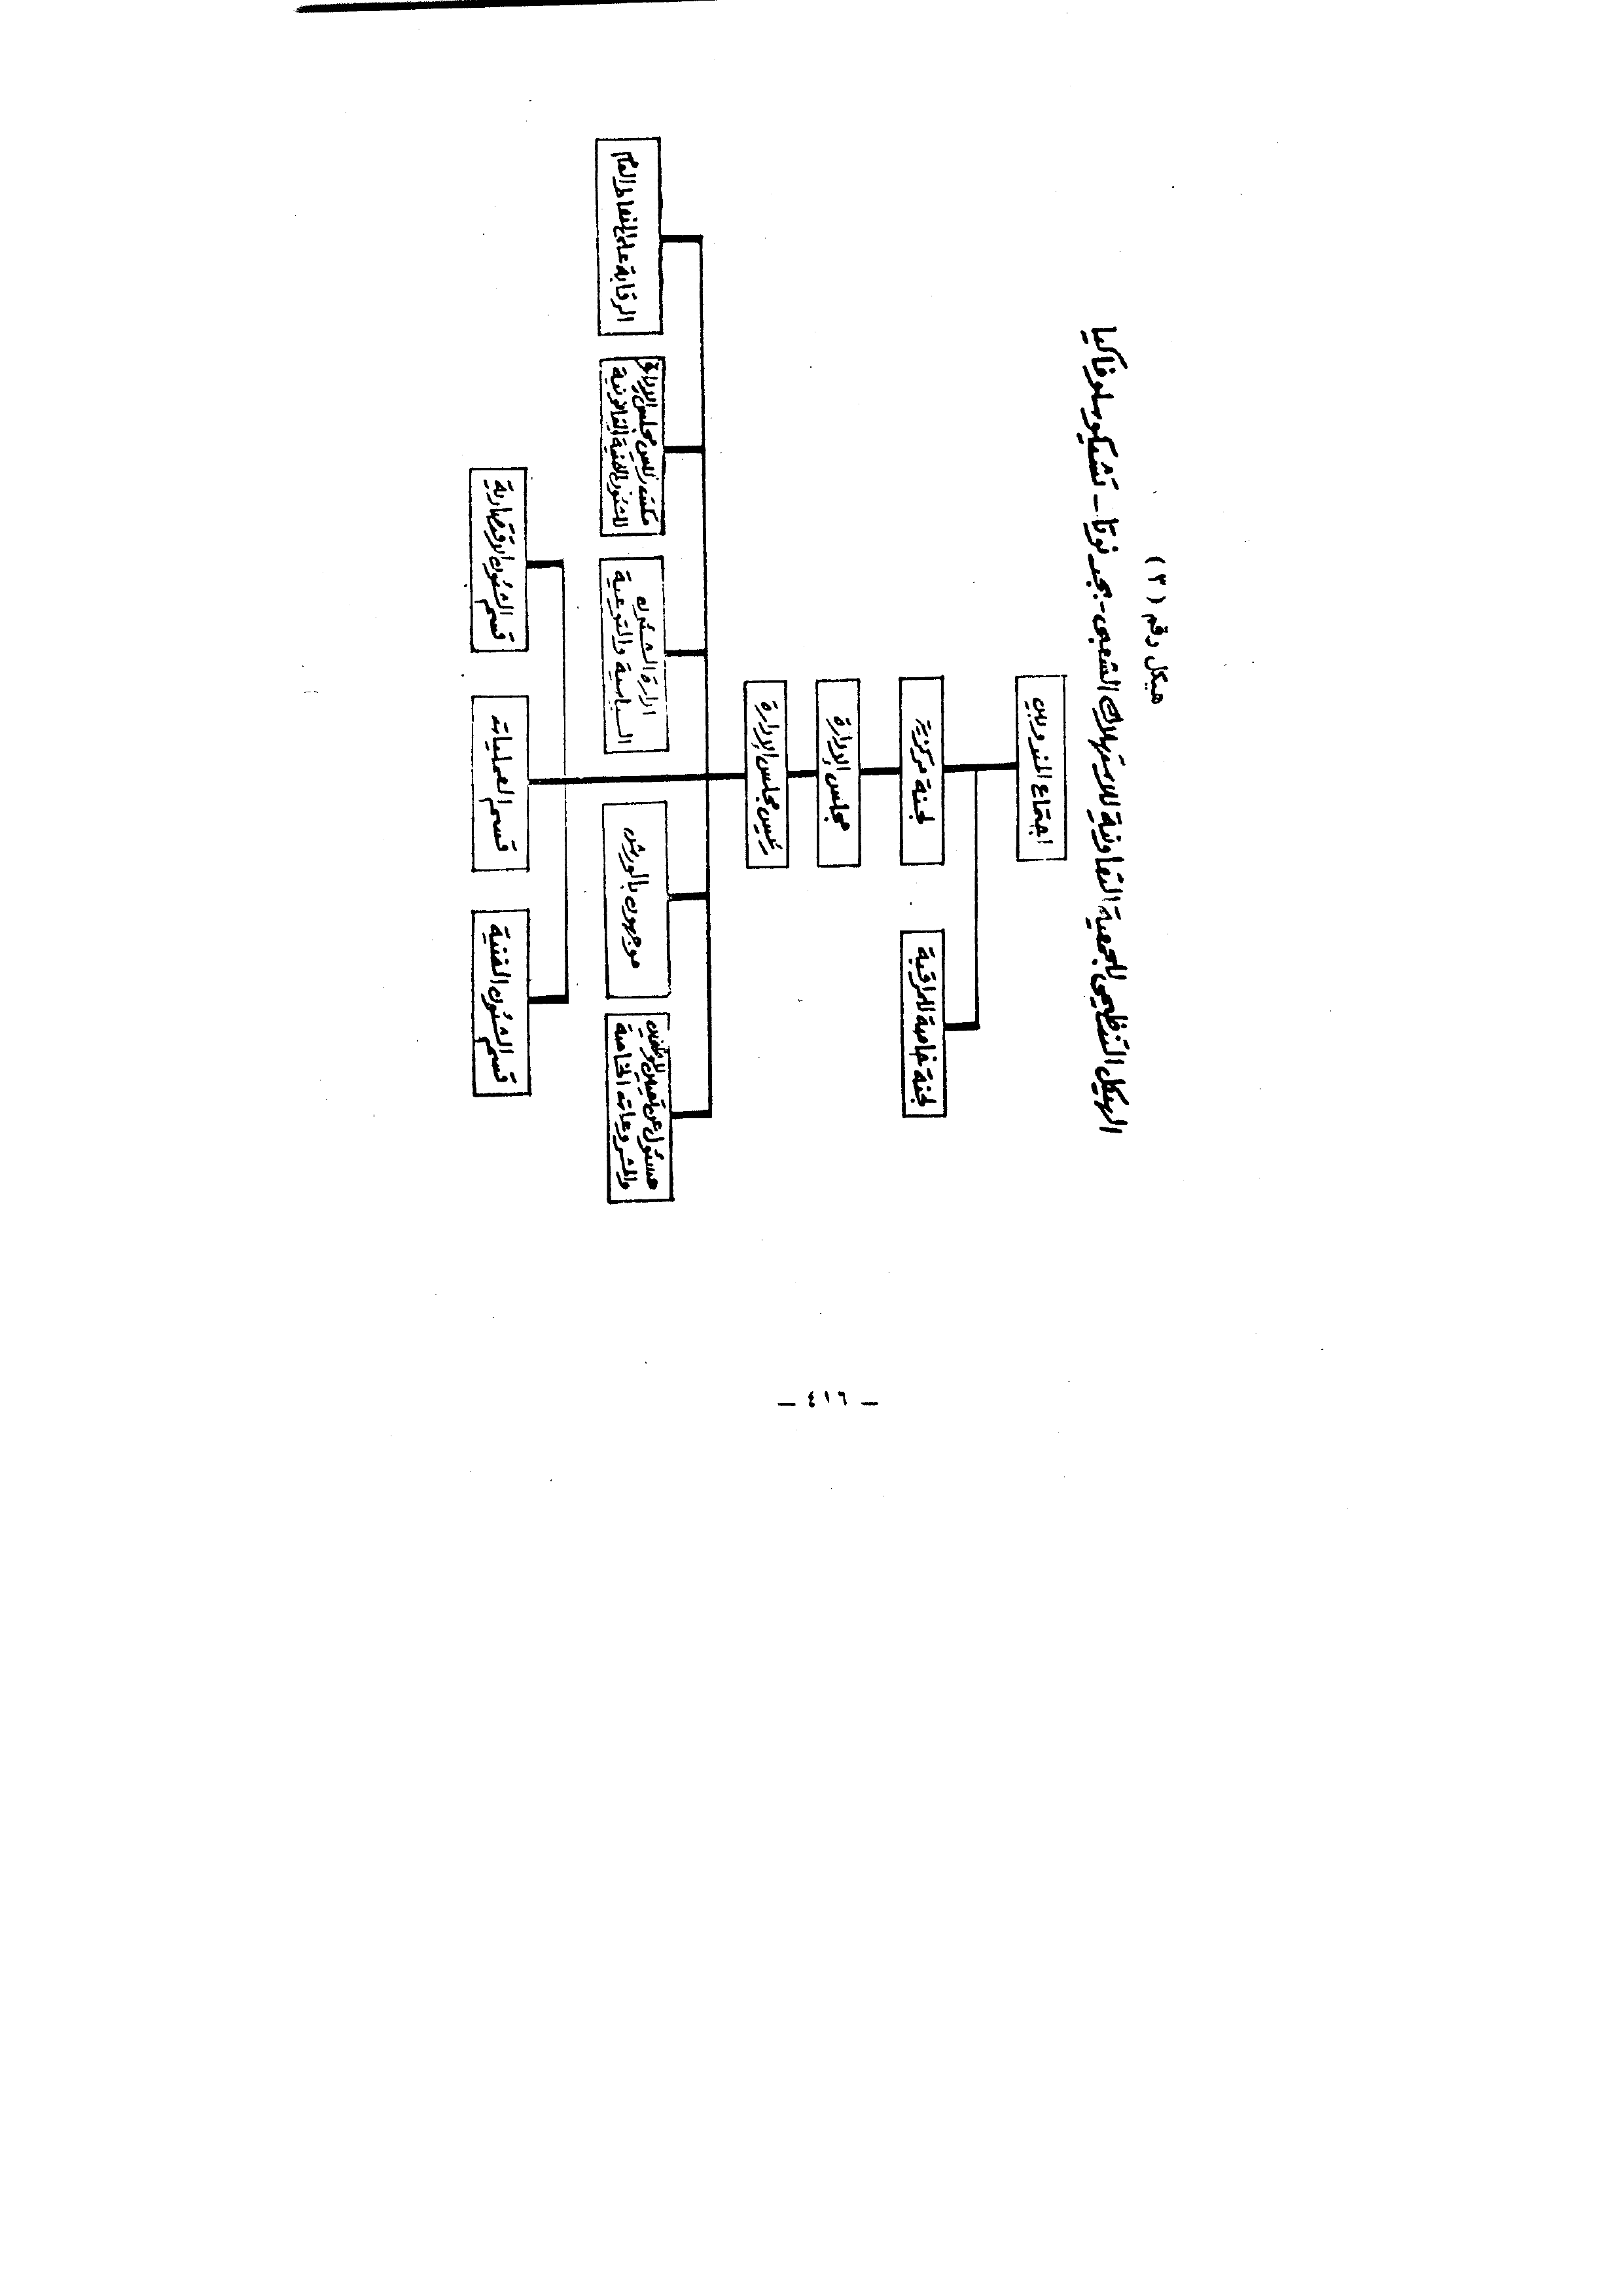 هيكل رقم (٣)
الهيكل التنظيمى للجمعية التعاونية للاستهلاك الشعبى - بجر نوتا - تشيكوسلوفاكيا
اجتماع المندوبين
لجنة مركزية
لجنة خاصة للمراقبة
مجلس الإدارة
رئيس مجلس الإدارة
مسئول عن تعيين الموظفين
والمشروعات الخاصة
موجهون بالورش
ادارة الشئون
السياسية والتوعية
مكتب رئيس مجلس الإدارة
للشئون الفنية والقانونية
الرقابة على النشاط العام
قسم الشئون الفنية
قسم العمليات
قسم الشئون الاقتصادية
— ٤١٦ —